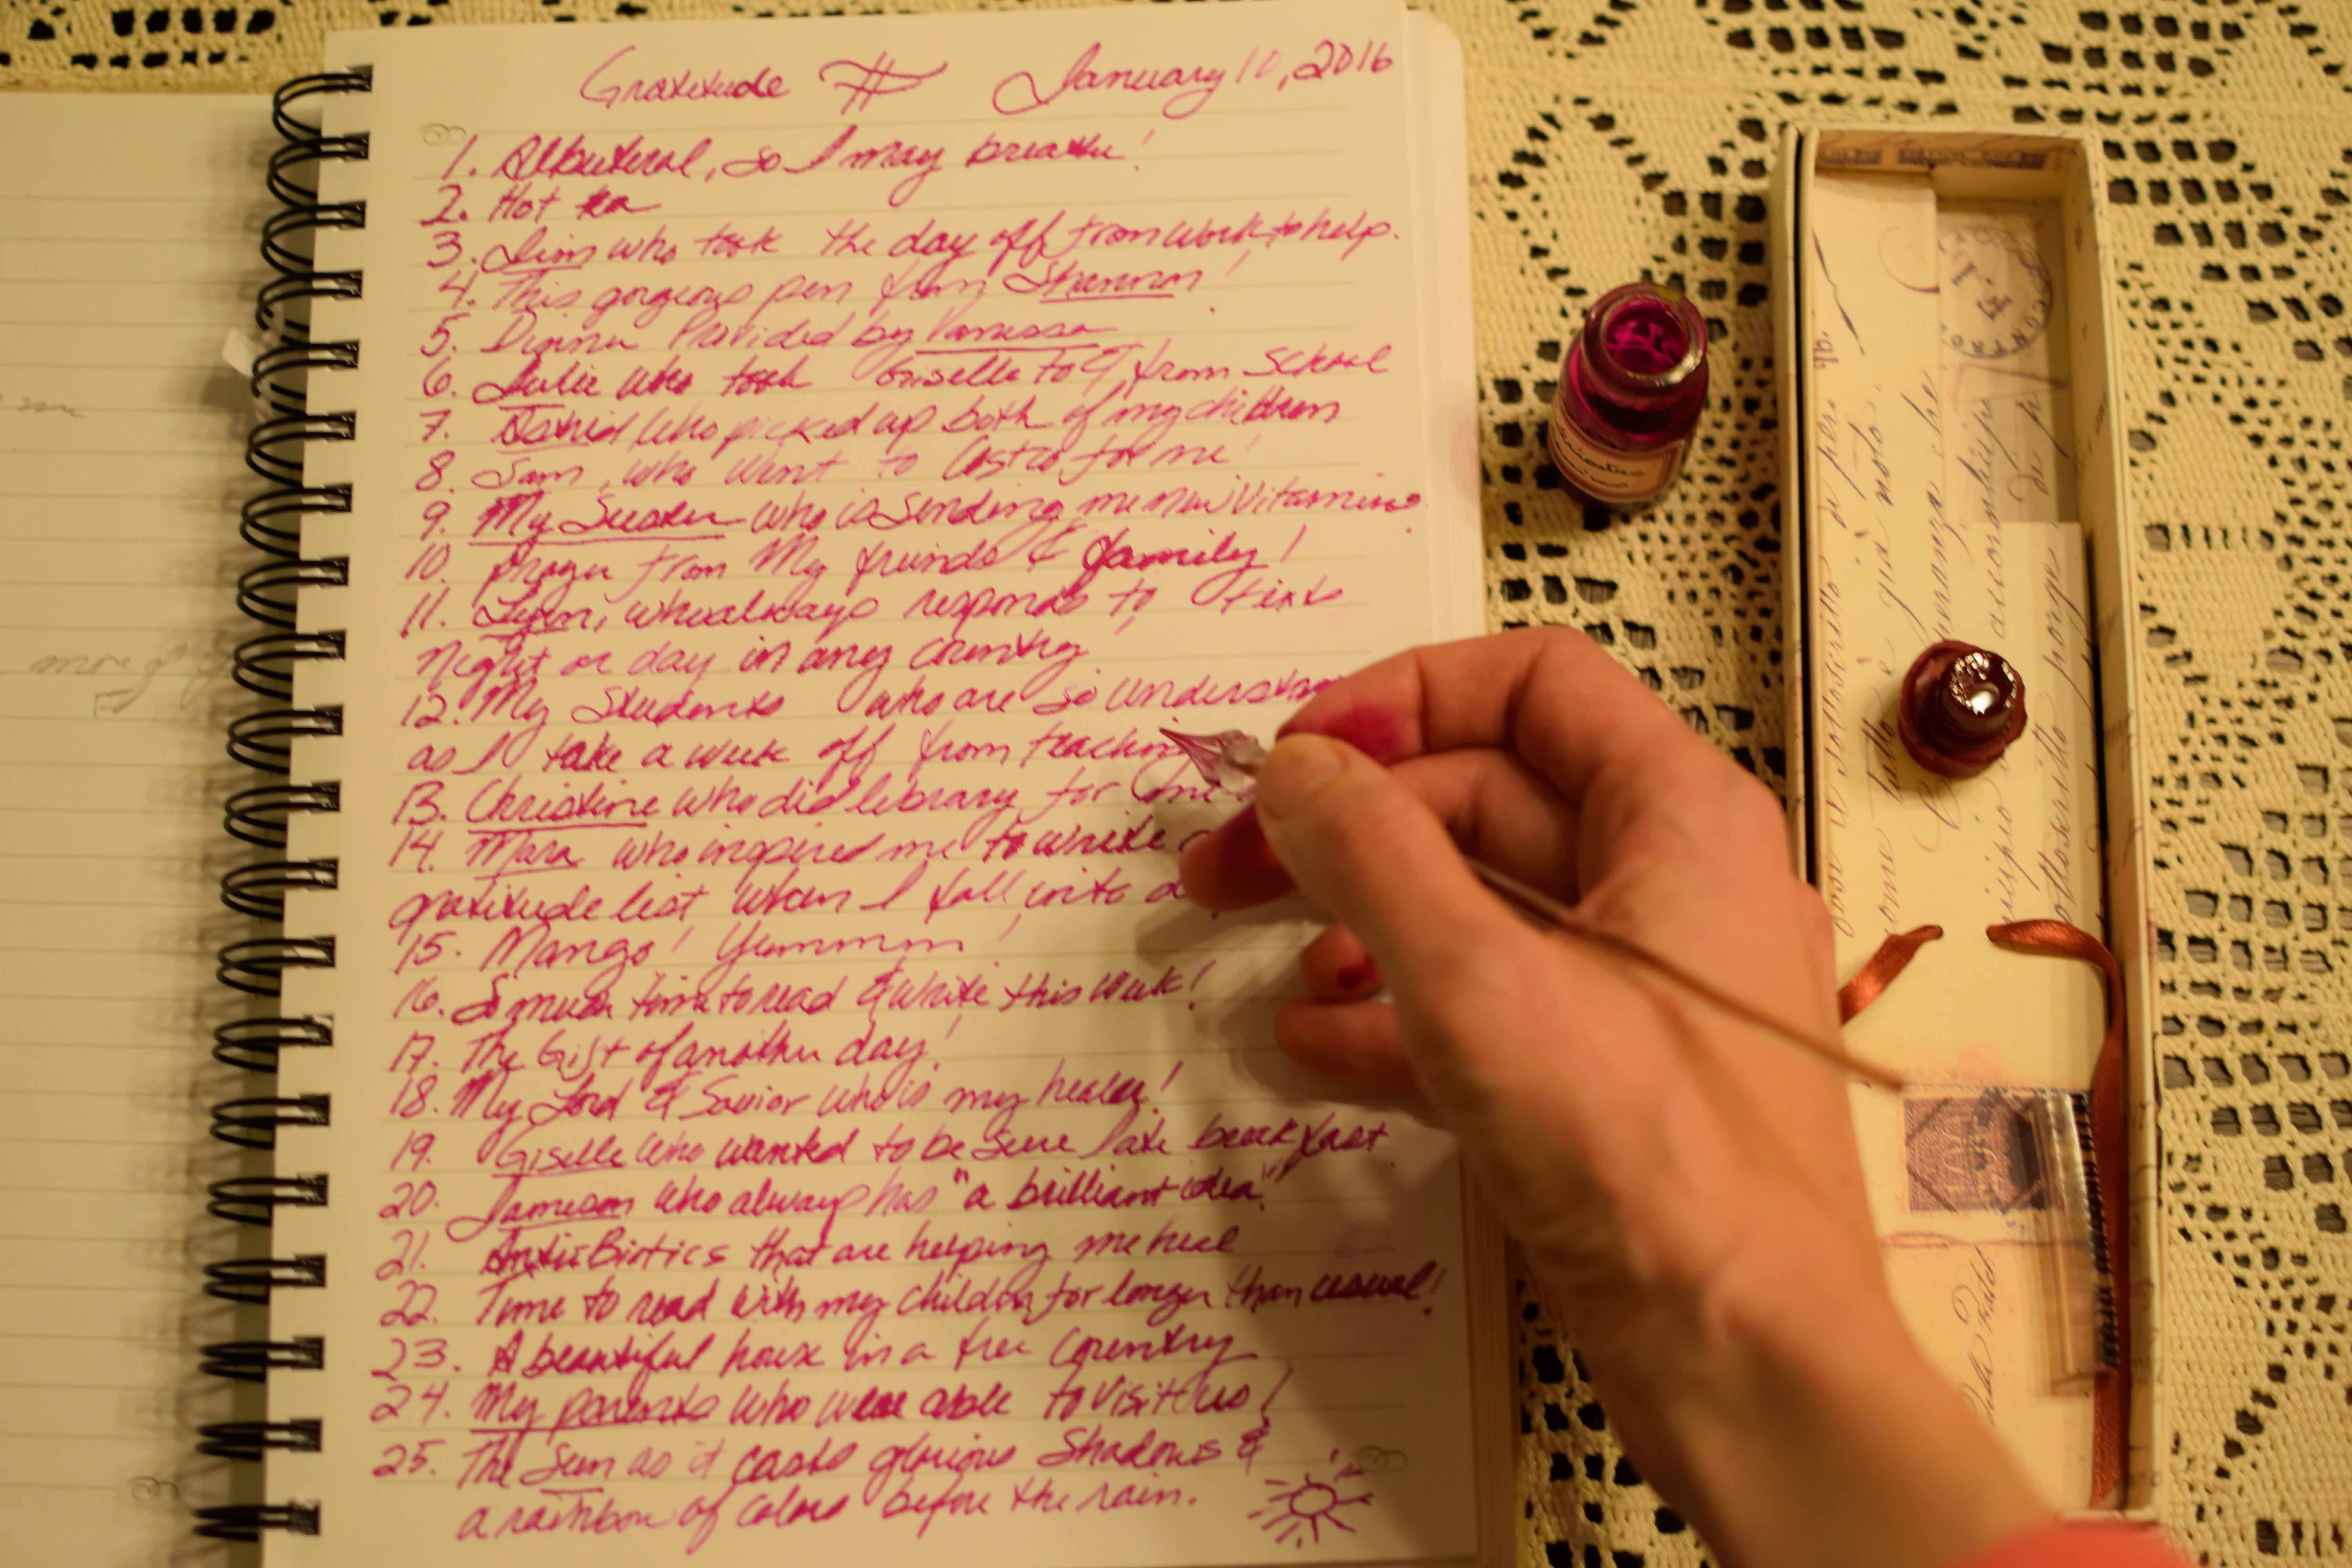 Gratitude January 10, 2016
1. Albuteral, so I may breathe!
2. Hot tea
3. Jim who took the day off from work to help.
4. This gorgeous pen from Shannon!
5. Dinner Provided by Vanessa
6. Julie who took Giselle to & from School
7. Astrid who picked up both of my children
8. Sam, who went to Costco for me!
9. My Sister who is sending me new Vitamins
10. prayer from My friends & family!
11. Lynn, who always responds to texts
night or day in any country
12. My Students who are so
as I take a week off from
13. Christine who did library for me
14. Mara who inspired me to write
gratitude list when I fall into a
15. Mango! Yummm!
16. So much time to read & write this week!
17. The Gift of another day!
18. My Lord & Savior who is my healer!
19. Giselle who wanted to be sure I ate breakfast
20. Jameson who always has "a brilliant idea"
21. AntiBiotics that are helping me heal
22. Time to read with my children for longer than usual!
23. A beautiful house in a free country
24. My parents who were able to visit us!
25. The Sun as it casts glorious Shadows &
a rainbow of colors before the rain.